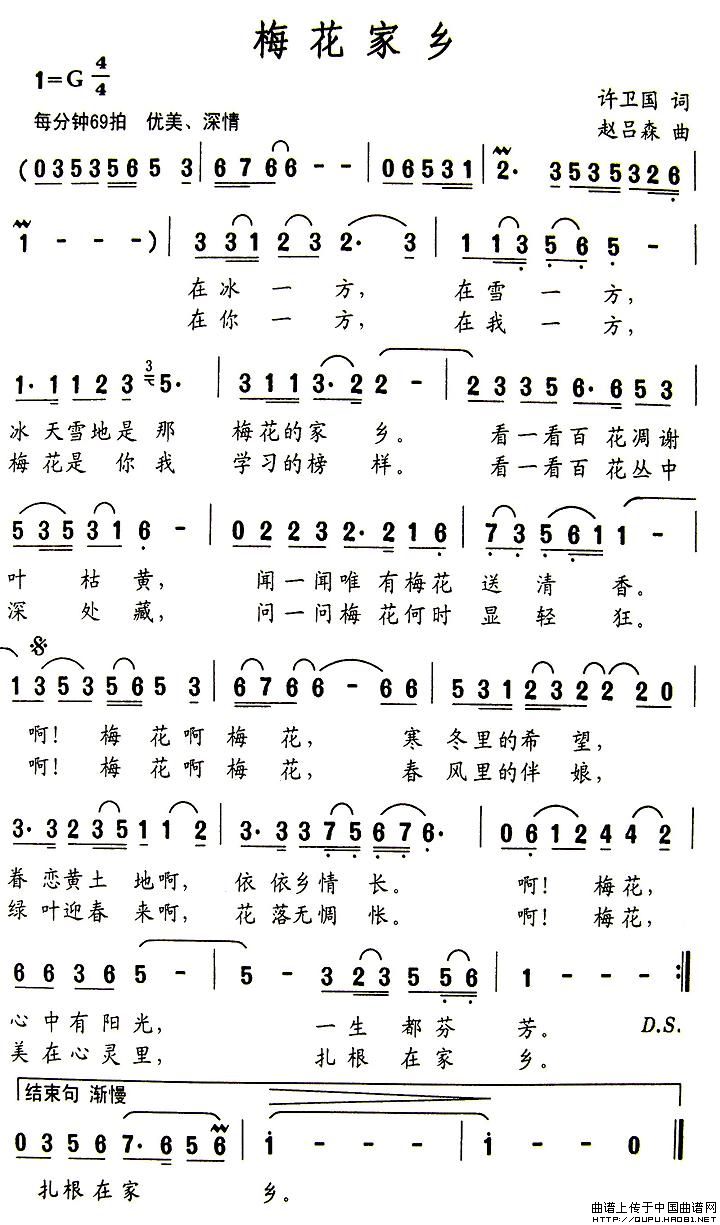 梅花家乡
1=G 4/4
许卫国 词
每分钟69拍 优美、深情
赵吕森 曲
(035356 5 3 | 6 7 6 6 - - | 0 6 5 3 1 | 2· 3 5 3 5 3 2 6 |
1 - - - ) | 3 3 1 2 3 2· 3 | 1 1 3 5 6 5 - |
在冰一方， 在雪一方，
在你一方， 在我一方，
1· 1 1 2 3 3 5· | 3 1 1 3· 2 2 - | 2 3 3 5 6· 6 5 3 |
冰天雪地是那 梅花的家乡。 看一看百花凋谢
梅花是你我 学习的榜样。 看一看百花丛中
5 3 5 3 1 6 - | 0 2 2 3 2· 2 1 6 | 7 3 5 6 1 1 - |
叶枯黄， 闻一闻唯有梅花送清香。
深处藏， 问一问梅花何时显轻狂。
1 3 5 3 5 6 5 3 | 6 7 6 6 6 - 6 6 | 5 3 1 2 3 2 2 2 0 |
啊！梅花啊梅花， 寒冬里的希望，
啊！梅花啊梅花， 春风里的伴娘，
3· 3 2 3 5 1 1 2 | 3· 3 3 7 5 6 7 6· | 0 6 1 2 4 4 2 |
眷恋黄土地啊， 依依乡情长。 啊！梅花，
绿叶迎春来啊， 花落无惆怅。 啊！梅花，
6 6 3 6 5 - | 5 - 3 2 3 5 5 6 | 1 - - - :|
心中有阳光， 一生都芬芳。 D.S.
美在心灵里， 扎根在家乡。
结束句 渐慢
0 3 5 6 7· 6 5 6 | i - - - | i - - 0 ‖
扎根在家乡。
曲谱上传于中国曲谱网
HTTP://QUPU.HAO81.NET